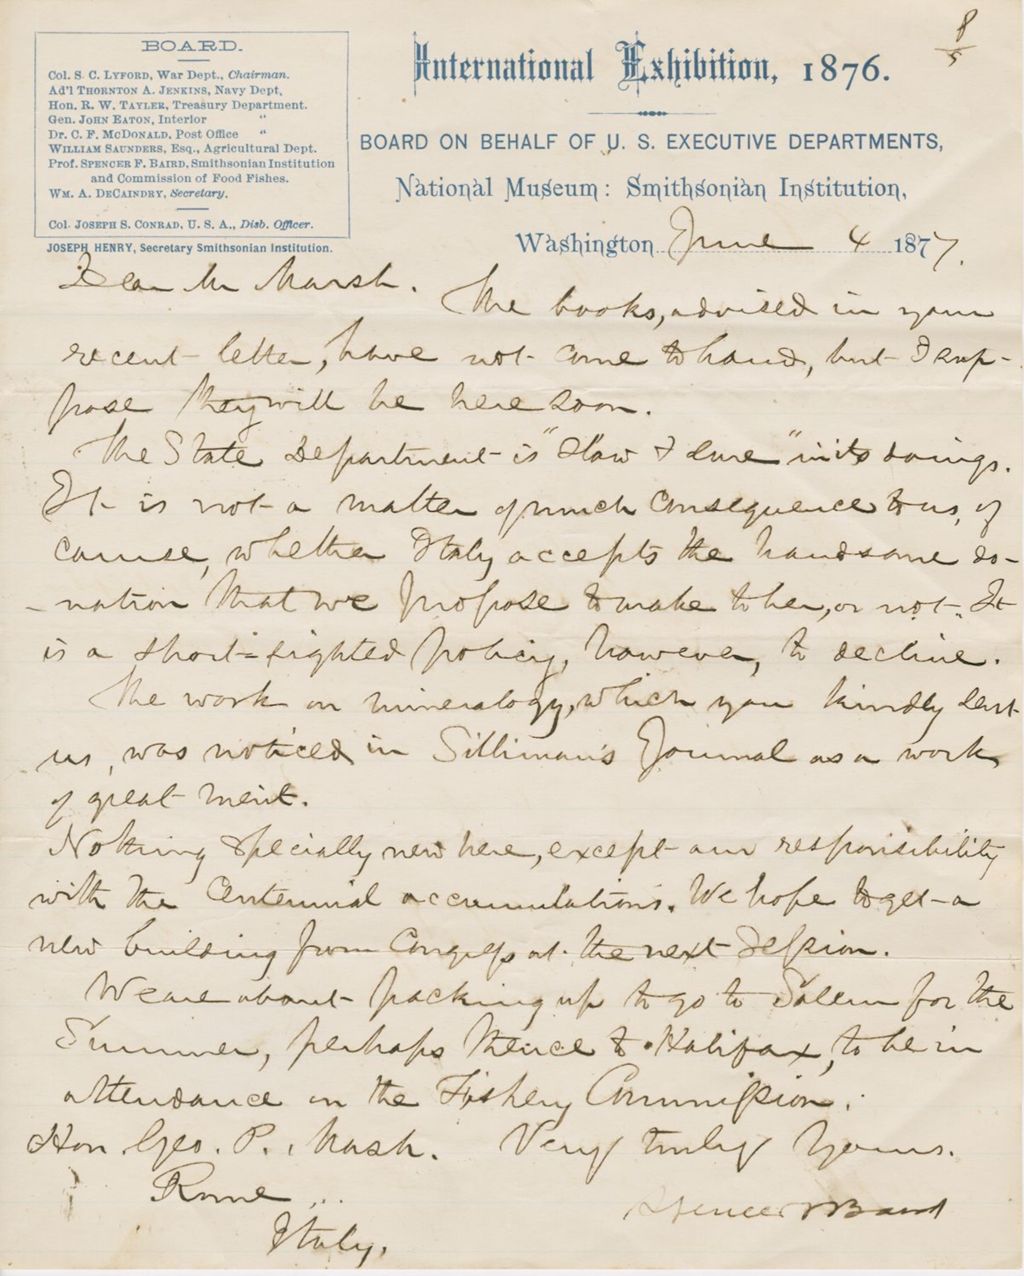 8/5
BOARD.
Col. S. C. LYFORD, War Dept., Chairman.
Ad'l THORNTON A. JENKINS, Navy Dept,
Hon. R. W. TAYLER, Treasury Department.
Gen. JOHN EATON, Interior "
Dr. C. F. MCDONALD, Post Office "
WILLIAM SAUNDERS, Esq., Agricultural Dept.
Prof. SPENCER F. BAIRD, Smithsonian Institution
and Commission of Food Fishes.
WM. A. DECAINDRY, Secretary.
Col. JOSEPH S. CONRAD, U. S. A., Disb. Officer.
JOSEPH HENRY, Secretary Smithsonian Institution.
International Exhibition, 1876.
BOARD ON BEHALF OF U. S. EXECUTIVE DEPARTMENTS,
National Museum: Smithsonian Institution,
Washington June 4 1877.
Dear Mr Marsh.
The books, advised in your
recent letter, have not come to hand, but I sup-
pose they will be here soon.
The State Department is "slow & sure" in its doings.
It is not a matter of much consequence to us, of
course, whether Italy accepts the handsome do-
-nation that we propose to make to her, or not. It
is a short-sighted policy, however, to decline.
The work on mineralogy, which you kindly sent
us, was noticed in Silliman's Journal as a work
of great merit.
Nothing specially new here, except our responsibility
with the Centennial accumulations. We hope to get a
new building from Congress at the next Session.
We are about packing up to go to Salem for the
Summer, perhaps thence to Halifax, to be in
attendance on the Fishery Commission.
Hon. Geo. P. Marsh. Very truly Yours.
Rome
Spencer F Baird
Italy.